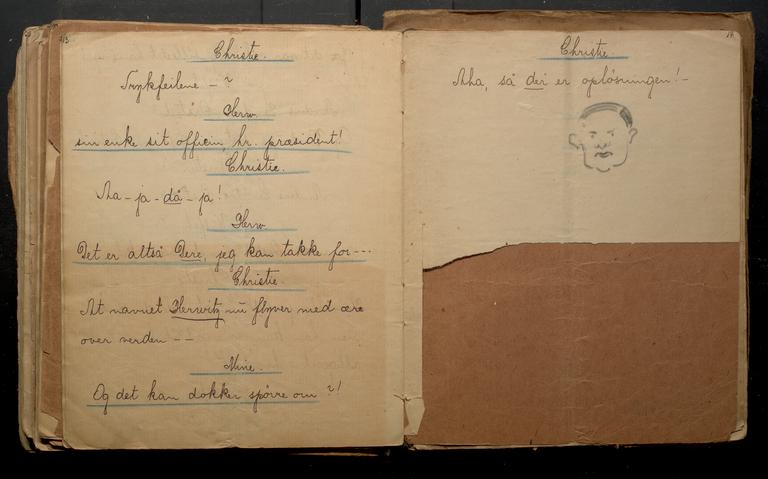 213
Christie.
Trykfeilene – ?
Herw.
sin enke sit officin, hr. præsident!
Christie.
Aa – ja – då – ja!
Herw.
Det er altså Dere, jeg kan takke for ---
Christie.
At navnet Herwitz nu flyver med ære
over verden --
Mine.
Og det kan dokker spörre om?!
Christie.
Aha, så der er oplösningen! –